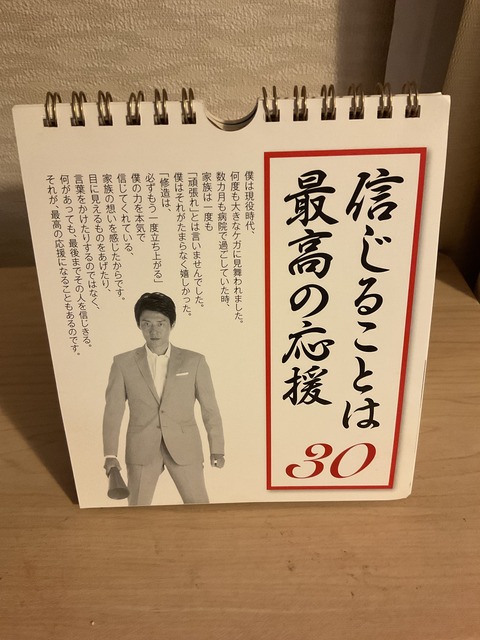 信じることは
最高の応援
30
僕は現役時代、
何度も大きなケガに見舞われました。
数カ月も病院で過ごしていた時、
家族は一度も
「頑張れ」とは言いませんでした。
僕はそれがたまらなく嬉しかった。
「修造は、
必ずもう一度立ち上がる」
僕の力を本気で
信じてくれている、
家族の想いを感じたからです。
目に見えるものをあげたり、
言葉をかけたりするのではなく、
何があっても、最後までその人を信じきる。
それが、最高の応援になることもあるのです。